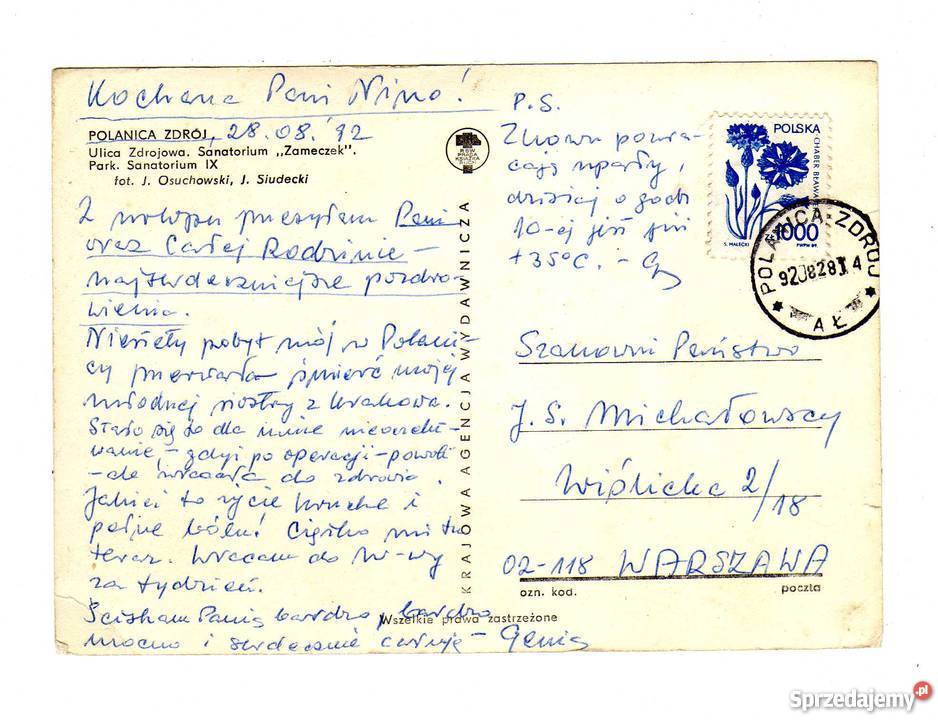 Kochana Pani Nino!
POLANICA ZDRÓJ, 28.08.'92
Ulica Zdrojowa. Sanatorium „Zameczek".
Park. Sanatorium IX
fot. J. Osuchowski, J. Siudecki
Z urlopu przesyłam Pani
oraz Całej Rodzinie –
najserdeczniejsze pozdro-
wienia.
Niestety pobyt mój w Polani-
cy przerwała śmierć mojej
młodszej siostry z Krakowa.
Stało się to dla mnie nieoczeki-
wanie, – gdyż po operacji – powoli
– ale wracała do zdrowia.
Jakież to życie kruche i
pełne bólu! Ciężko mi tu
teraz. Wracam do W-wy
za tydzień.
Ściskam Panią bardzo, bardzo
mocno i serdecznie całuję – Genia
KRAJOWA AGENCJA WYDAWNICZA
RSW
PRASA
KSIĄŻKA
RUCH
P.S.
Znowu powra-
cają upały,
dzisiaj o godz
10-ej jest już
+35°C. – G
POLSKA
CHABER BŁAWATEK
1000
S. MAŁECKI
PWPW 89.
POLANICA-ZDRÓJ
AŁ
Szanowni Państwo
J.S. Michałowscy
Wiślicka 2/18
02-118 WARSZAWA
ozn. kod.
poczta
Wszelkie prawa zastrzeżone
Sprzedajemy.pl